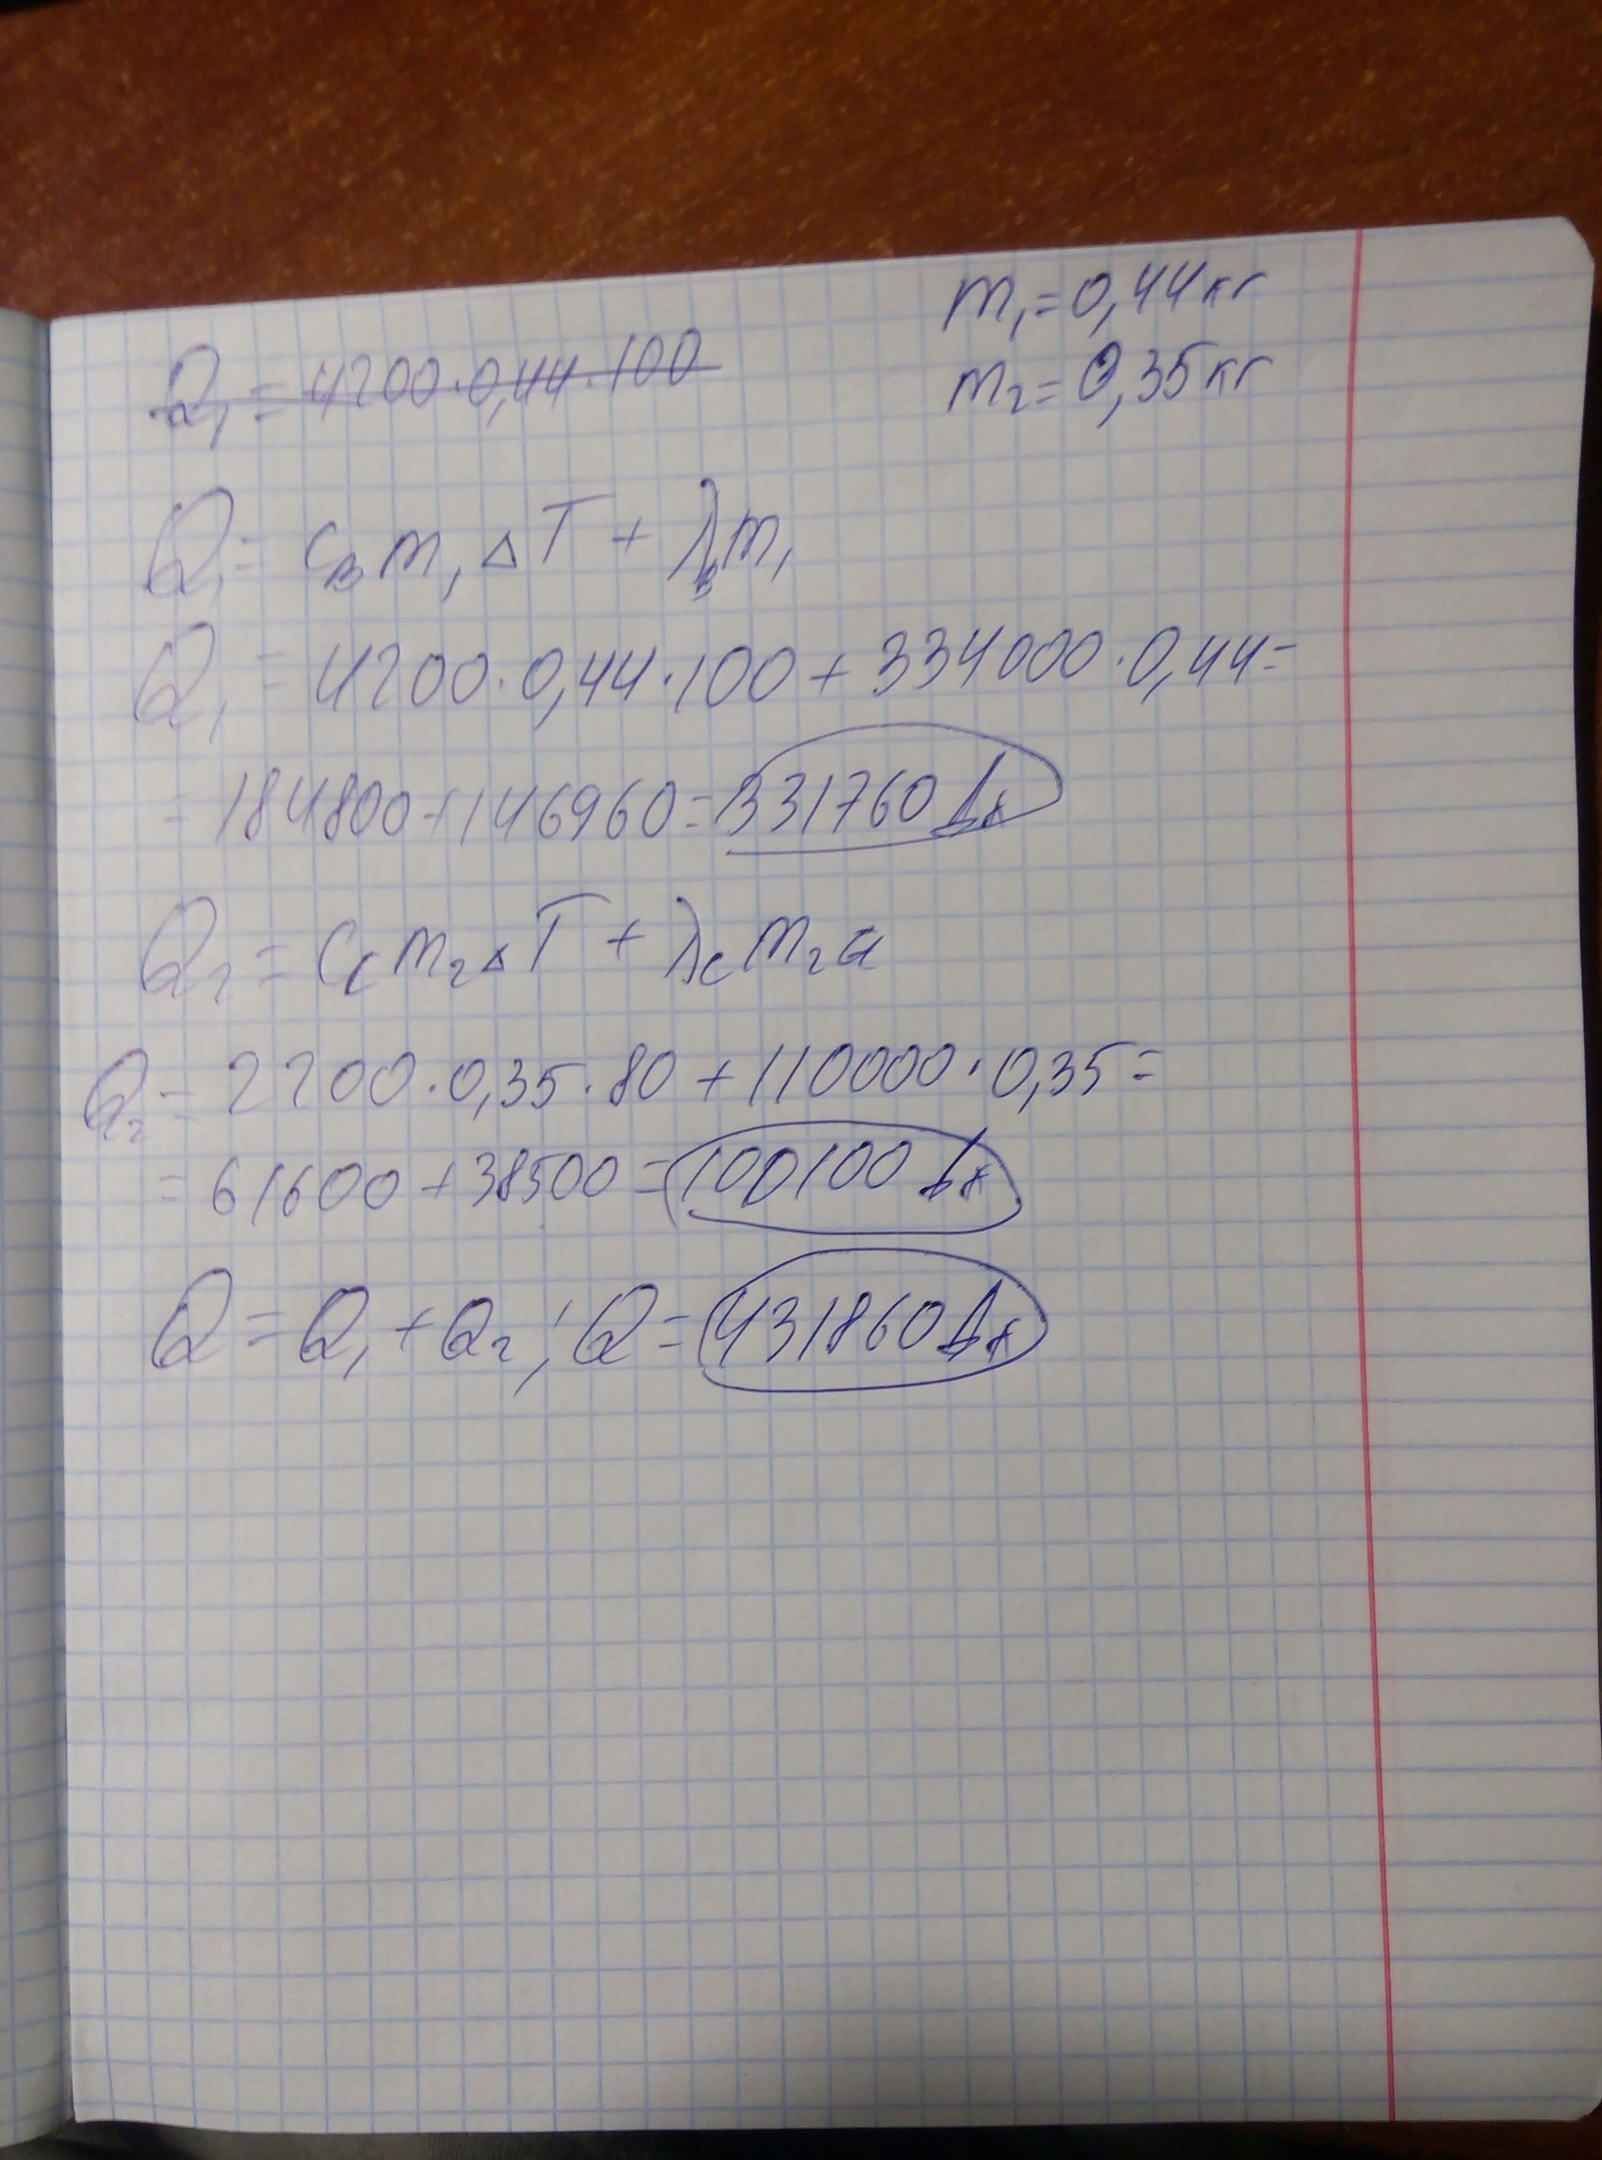 m₁ = 0,44 кг
m₂ = 0,35 кг
Q₁ = 4200·0,44·100
Q₁ = cвm₁ΔT + λвm₁
Q₁ = 4200·0,44·100 + 334000·0,44 =
= 184800 + 146960 = 331760 Дж
Q₂ = ccm₂ΔT + λcm₂
Q₂ = 2200·0,35·80 + 110000·0,35 =
= 61600 + 38500 = 100100 Дж
Q = Q₁ + Q₂; Q = 431860 Дж